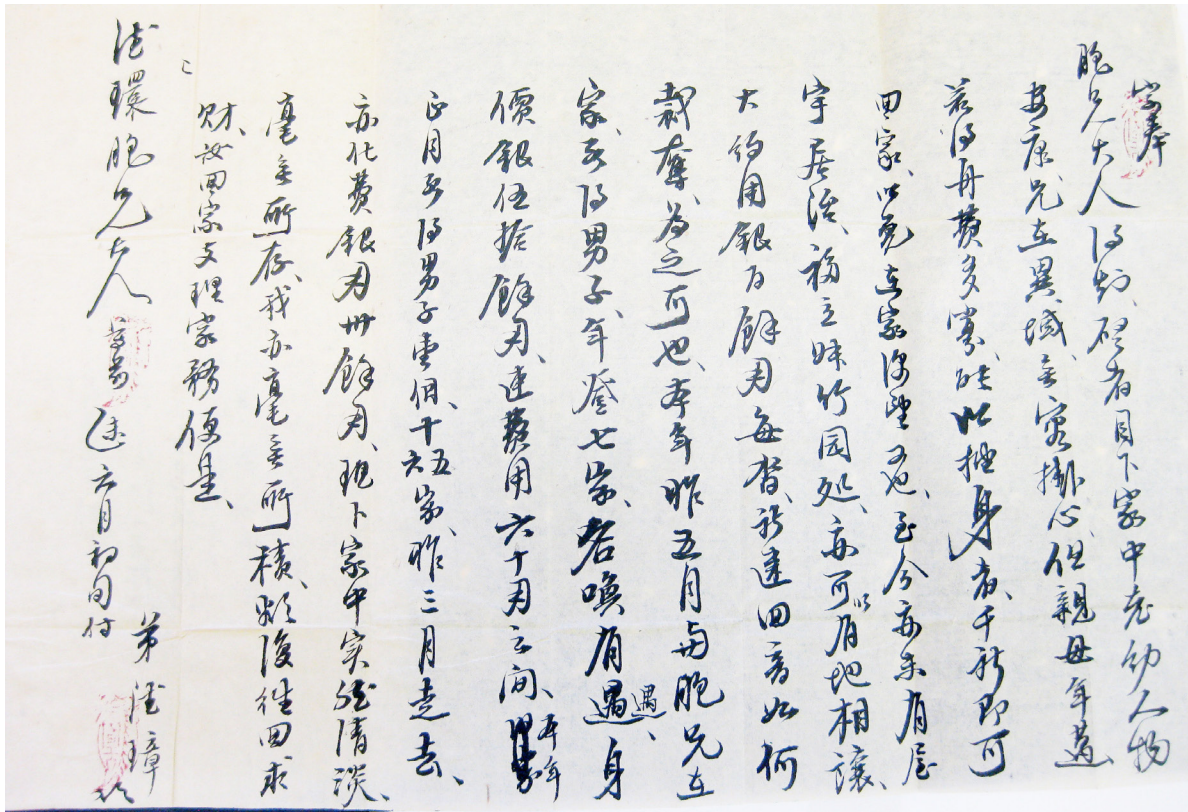 字奉
胞兄大人 得知、啓者目下家中老幼人物
安康、兄在異域、無容掛心、但親母年邁
若得丹費多寡、此極身者、千祈即可
回家、以免在家洢望也、至今亦未有屋
宇居治、移立昧竹园处、亦可以有地相讓、
大約用銀百餘両、每營、祈速回音如何
裁奪、為之可也、本年昨五月與胞兄在
家、安得男子、年登七岁、名喚有遇、身
價銀伍拾餘両、連費用六十両之间、本年
正月安得男子壹個、十五六岁、昨三月走去、
亦化費銀両卅餘両、現下家中实然清淡、
毫無所存、我亦毫無所積、然後往回求
財、汝回家支理家務便是、
德環胞兄大人 六月初旬付
弟 德璋